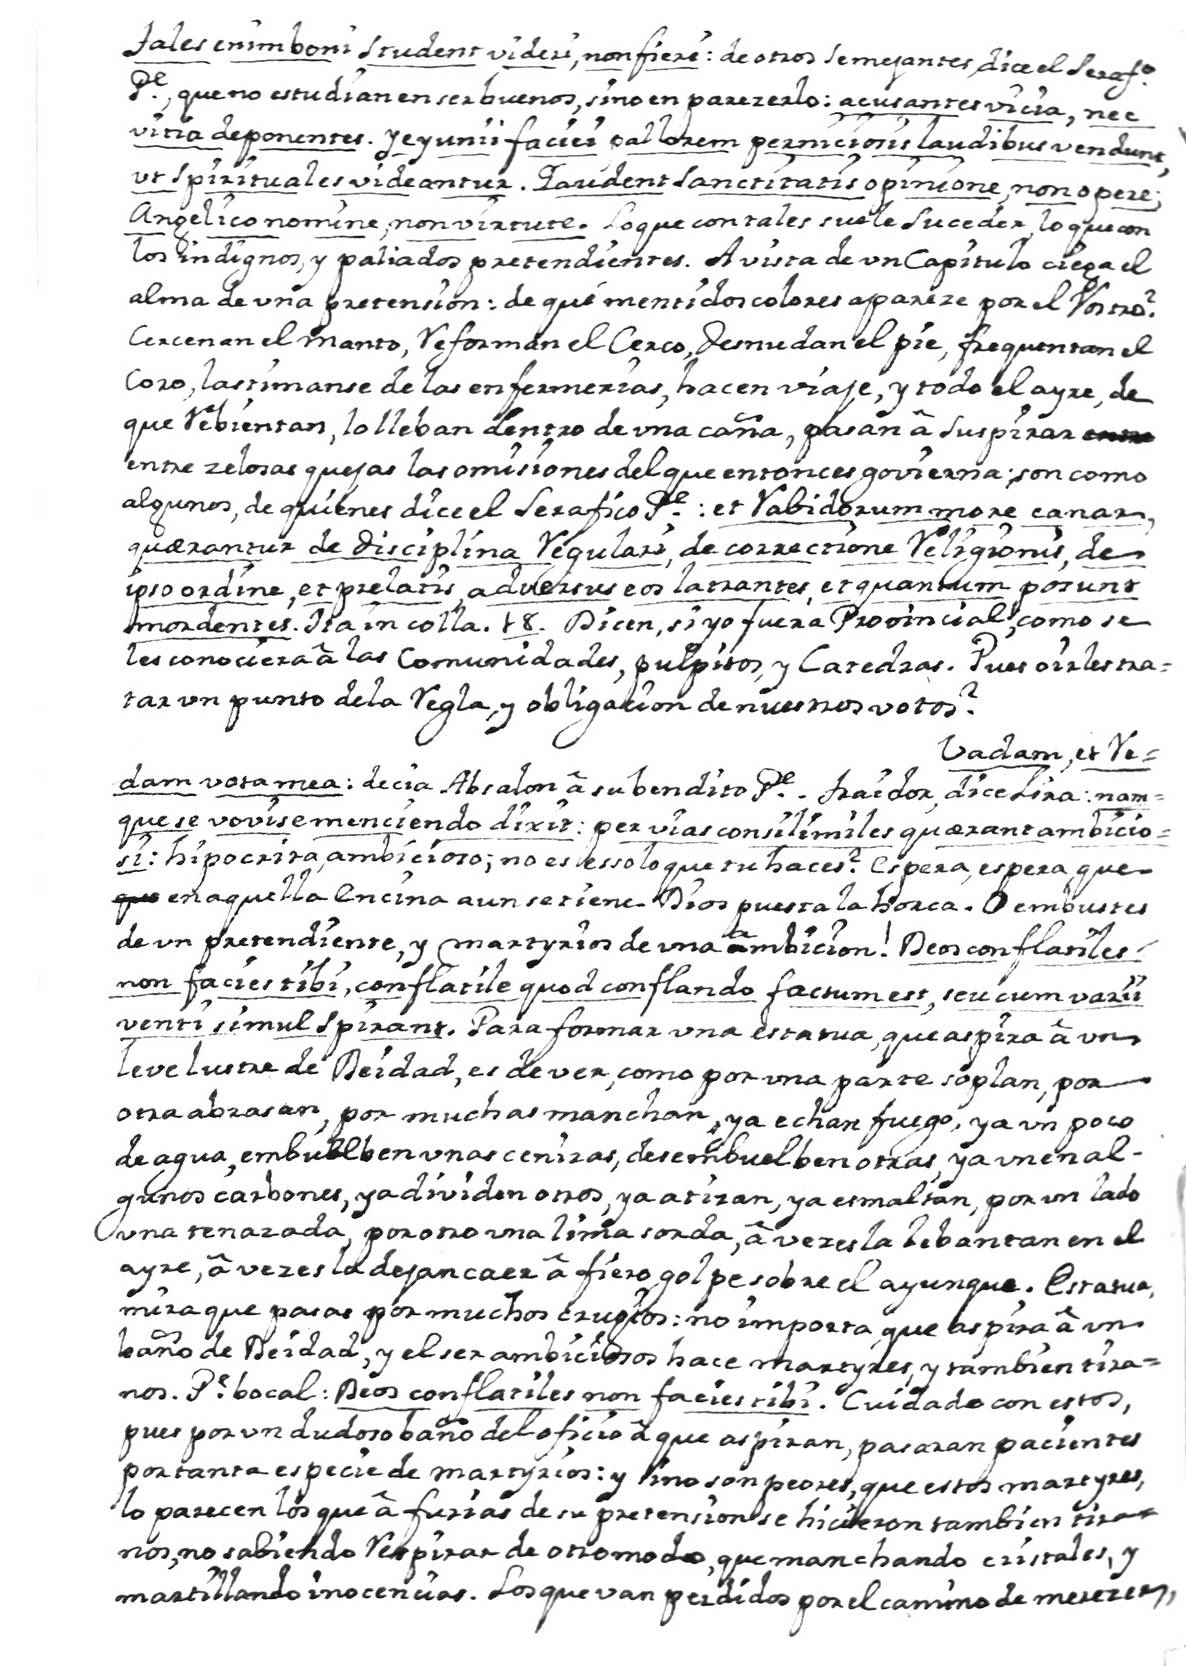 tales enim boni student videri, non fieri: de otros semejantes, dice el Seraf.º
P.e, que no estudian en ser buenos, sino en parezerlo: acusantes vicia, nec
vitia deponentes. Yeyunii faciei pallorem perniciosis laudibus vendunt,
ut Spirituales videantur. Gaudent sanctitatis opinione, non opere;
Angelico nomine, non virtute. Lo que con tales suele suceder, lo que con
los indignos, y paliados pretendientes. A vista de vn Capitulo ciega el
alma de vna pretension: de que mentidos colores apareze por el Rostro?
Cercenan el manto, Reforman el Cerco, Desnudan el pie, frequentan el
Coro, lastimanse de las enfermerias, hacen viaje, y todo el ayre, de
que Rebientan, lo lleban dentro de vna caña, pasan â suspirar
entre zelosas quejas las omisiones del que entonces govierna; son como
algunos, de quienes dice el Serafico P.e: et Rabidorum more canum,
quærantur de disciplina Regulari, de correctione Religionis, de
ipso ordine, et prelatis, adversus eos latrantes, et quantum posunt
mordentes. Ita in colla. 18. Dicen, si yo fuera Provincial, como se
les conociera â las Comunidades, pulpitos, y Catedras. Pues oirles tra=
tar vn punto de la Regla, y obligacion de nuestros votos?
Vadam, et Re=
dam vota mea: decia Absalon â su bendito P.e. traidor, dice Lira: nam=
que se vovise menciendo dixit: per vias consilimiles quærant ambicio=
si: hipocrita, ambicioso; no es esso lo que tu haces? Espera, espera que
que en aquella Encina aun se tiene Dios puesta la horca. O embustes
de vn pretendiente, y martyrios de una ambicion! Deos conflatiles
non facies tibi, conflatile quod conflando factum est, seu cum varii
venti simul spirant. Para formar vna estatua, que aspira â vn
leve lustre de Deidad, es de ver, como por vna parte soplan, por
otra abrasan, por muchas manchan, ya echan fuego, ya vn poco
de agua, embuelben vnas cenizas, desembuelben otras, ya vnen al-
gunos carbones, ya dividen otros, ya atizan, ya esmaltan, por vn lado
vna tenazada, por otro vna lima sorda, â vezes la lebantan en el
ayre, â vezes la dejan caer â fiero golpe sobre el ayunque. Estatua,
mira que pasas por muchos crugios: no importa, que aspira â vn
baño de Deidad, y el ser ambiciosos hace martyres, y tambien tira=
nos. P.e bocal: Deos conflatiles non facies tibi. Cuidado con estos,
pues por vn dudoso baño del oficio â que aspiran, pasaran pacientes
por tanta especie de martyrios: y sino son peores, que estos martyres,
lo parecen los que â furias de su pretension se hicieron tambien tira=
nos, no sabiendo Respirar de otro modo, que manchando cristales, y
martillando inocencias. Los que van perdidos por el camino de merezer,